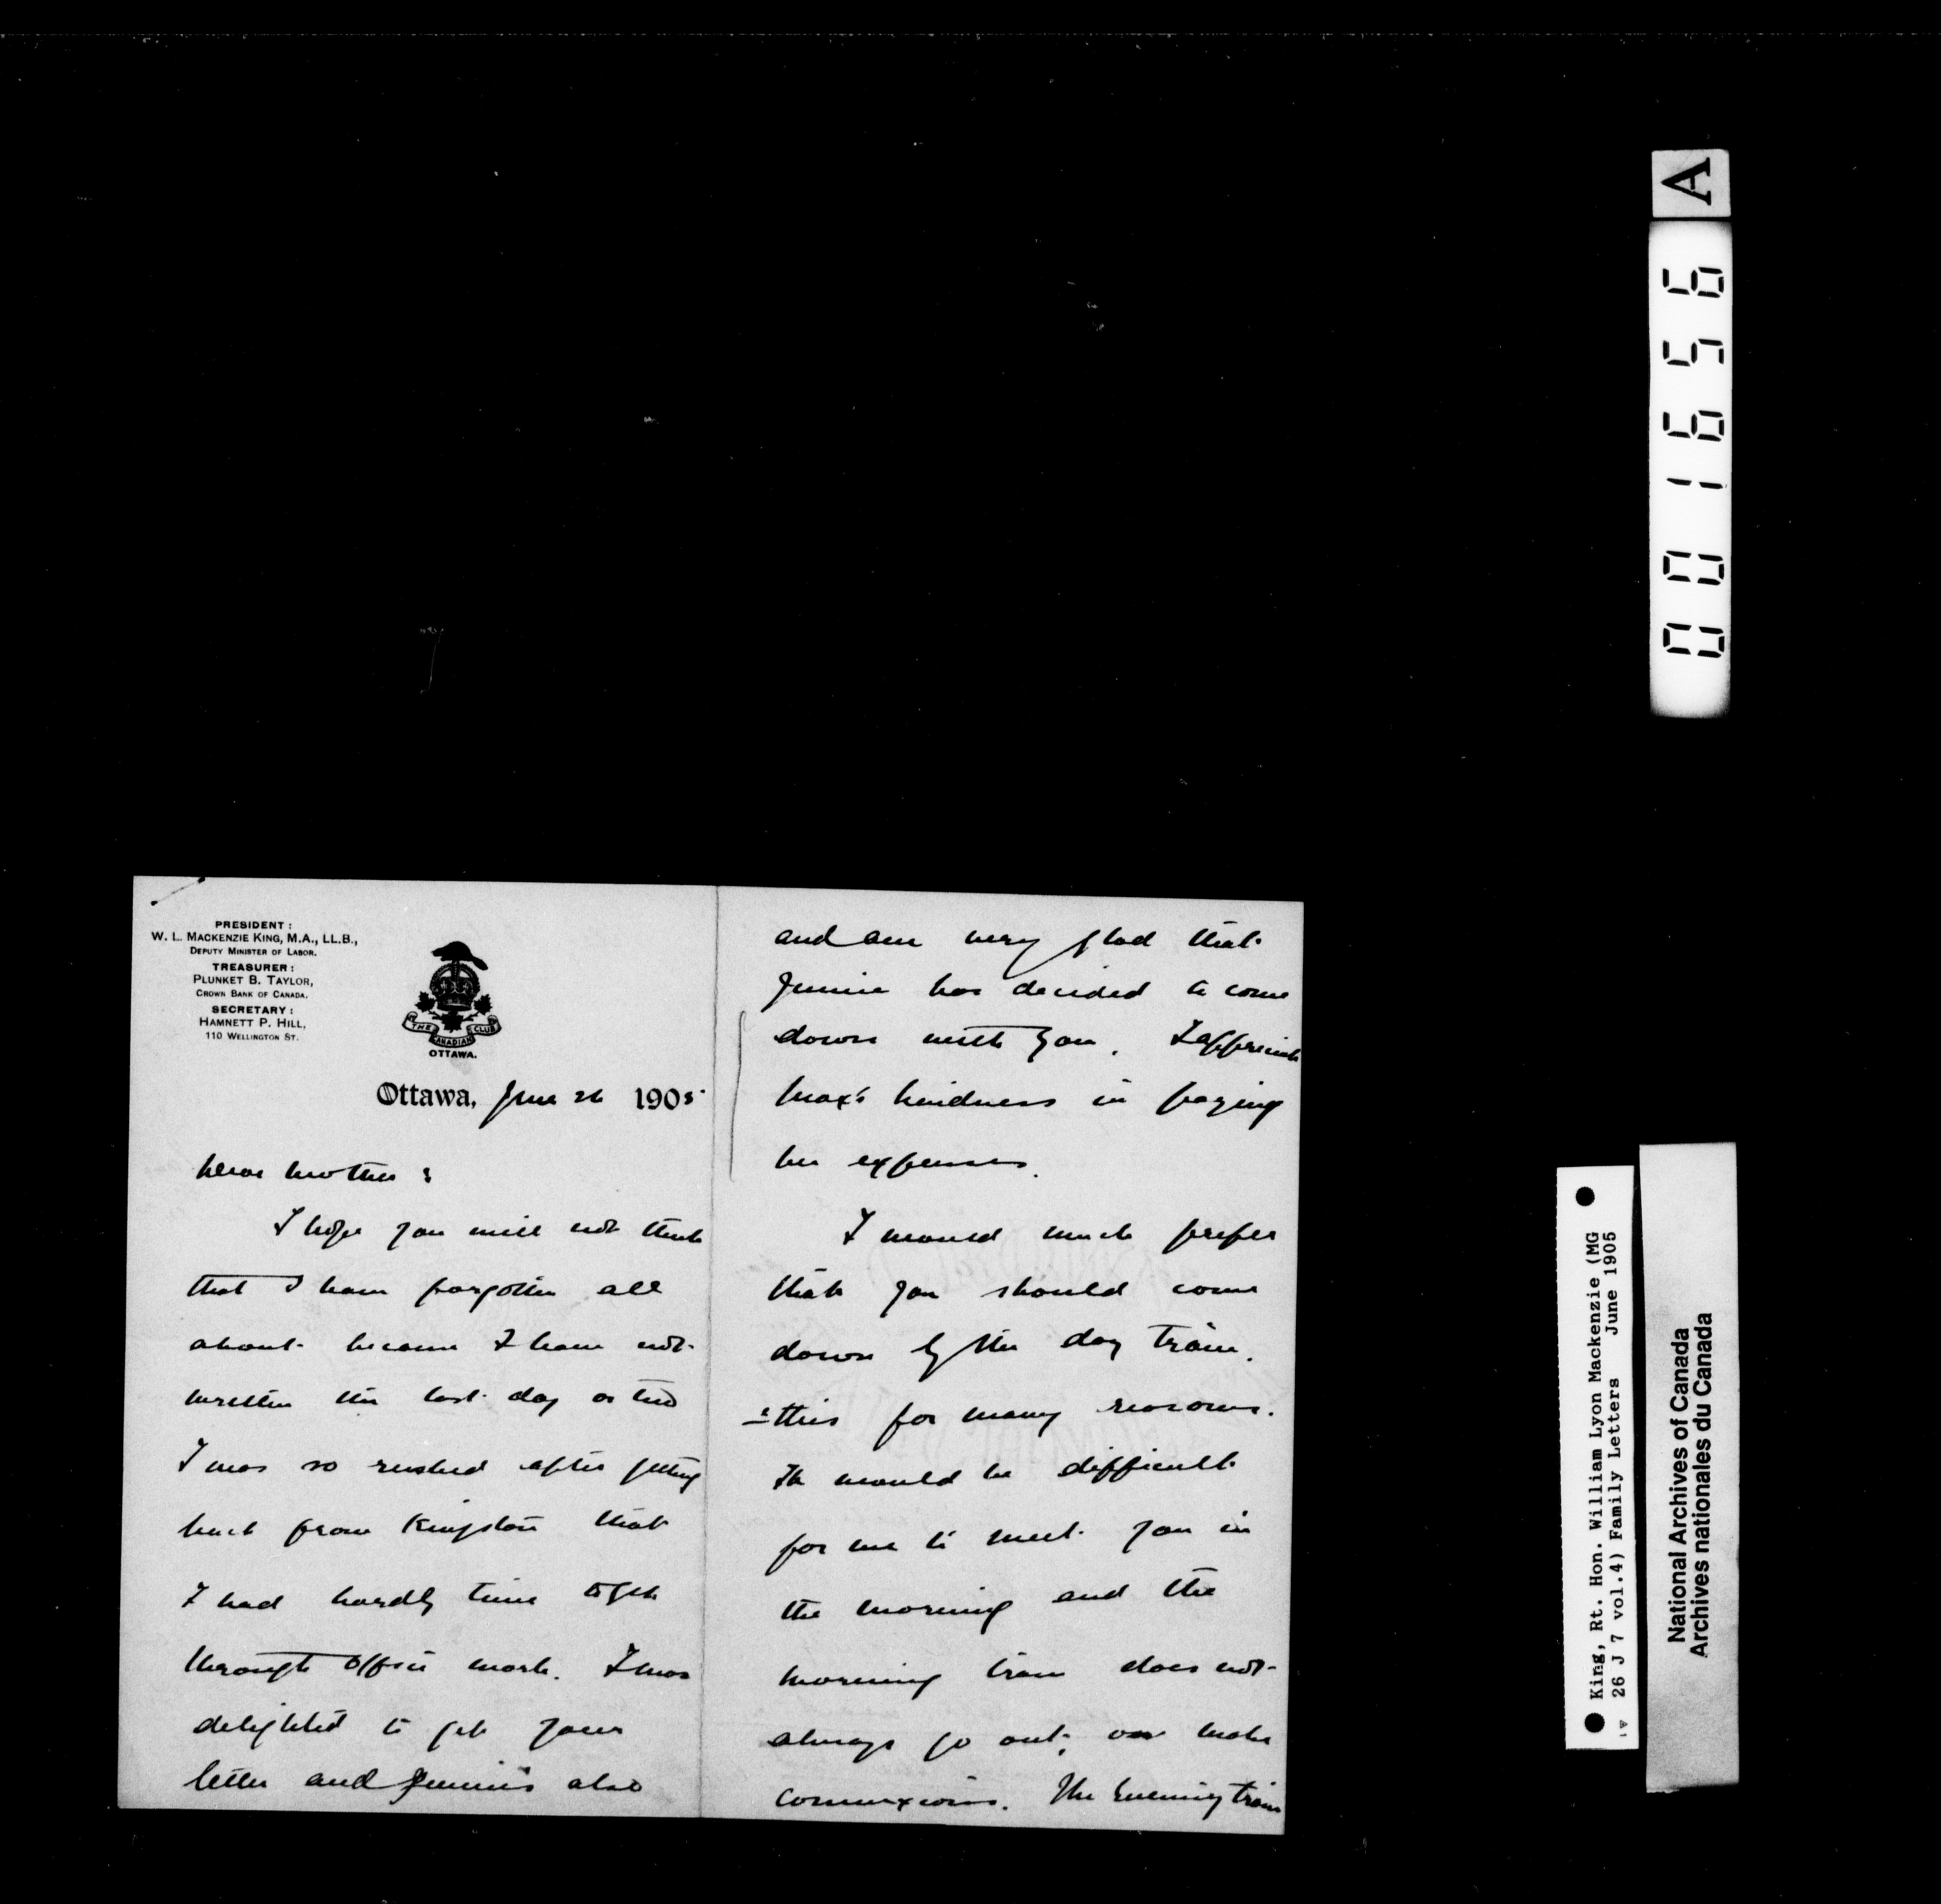 PRESIDENT:
W. L. MACKENZIE KING, M.A., LL.B.,
DEPUTY MINISTER OF LABOR.
TREASURER:
PLUNKET B. TAYLOR,
CROWN BANK OF CANADA.
SECRETARY:
HAMNETT P. HILL,
110 WELLINGTON ST.
THE CANADIAN CLUB
OTTAWA.
Ottawa, June 26 1905.
Dear Mother:
I hope you will not think
that I have forgotten all
about because I have not
written the last day or two
I was so rushed after getting
back from Kingston that
I had hardly time to get
through office work. I was
delighted to get your
letter and Jennie's also
and am very glad that
Jennie has decided to come
down with you. I appreciate
Max's kindness in paying
her expenses.
I would much prefer
that you should come
down by the day train.
this for many reasons.
It would be difficult
for me to meet you in
the morning and the
morning train does not
always go out, or make
connexions. The Evening train
A
001656
King, Rt. Hon. William Lyon Mackenzie (MG
26 J 7 vol.4) Family Letters June 1905
National Archives of Canada
Archives nationales du Canada